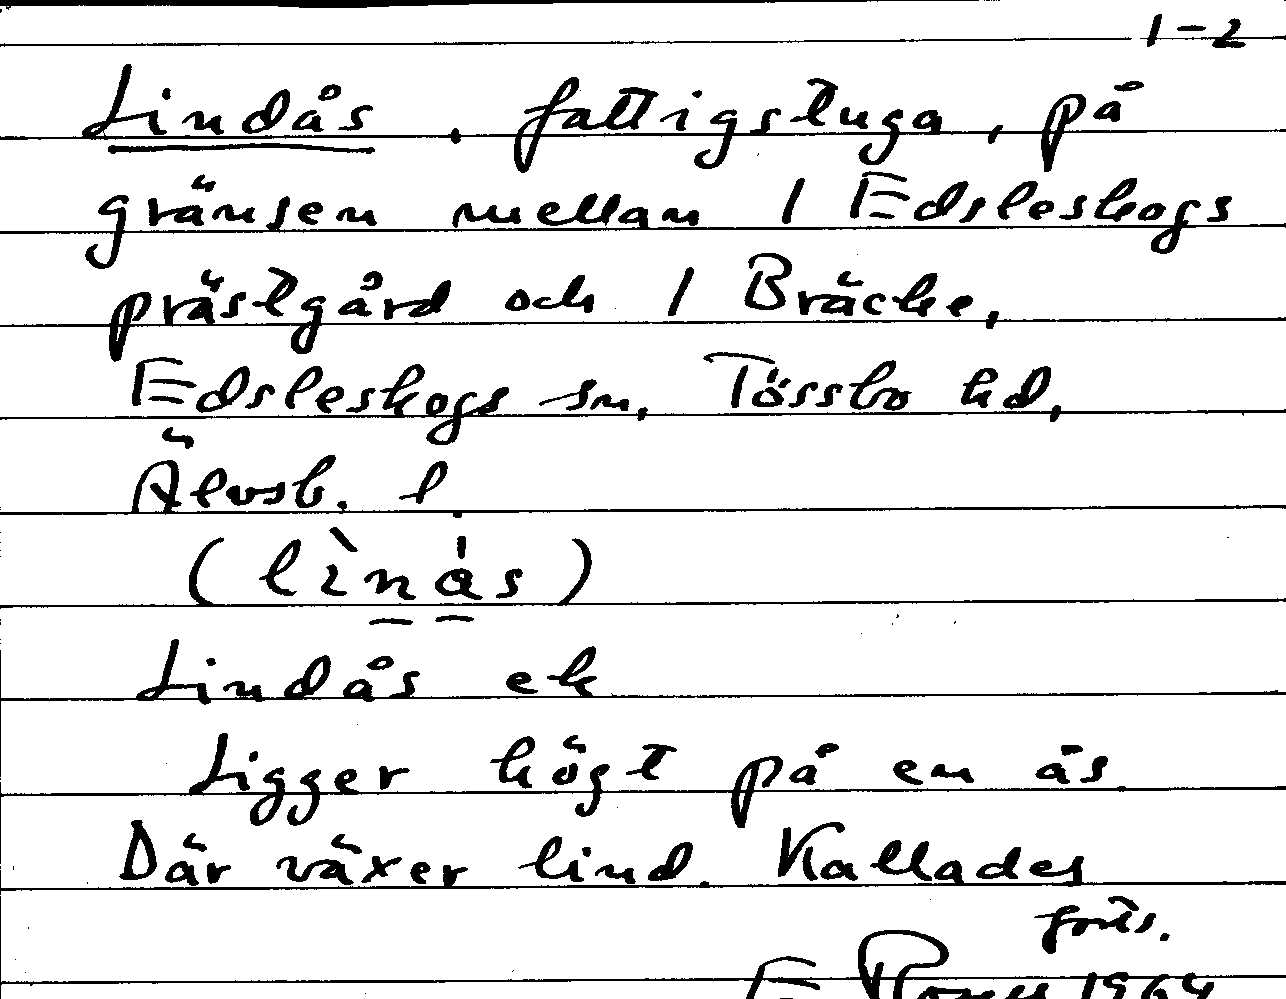 1-2
Lindås, fattigstuga, på
gränsen mellan 1 Edsleskogs
prästgård och 1 Bräcke,
Edsleskogs sn, Tössbo hd,
Älvsb. l.
(lìnås)
Lindås ek
Ligger högt på en ås.
Där växer lind. Kallades
forts.
E 1964